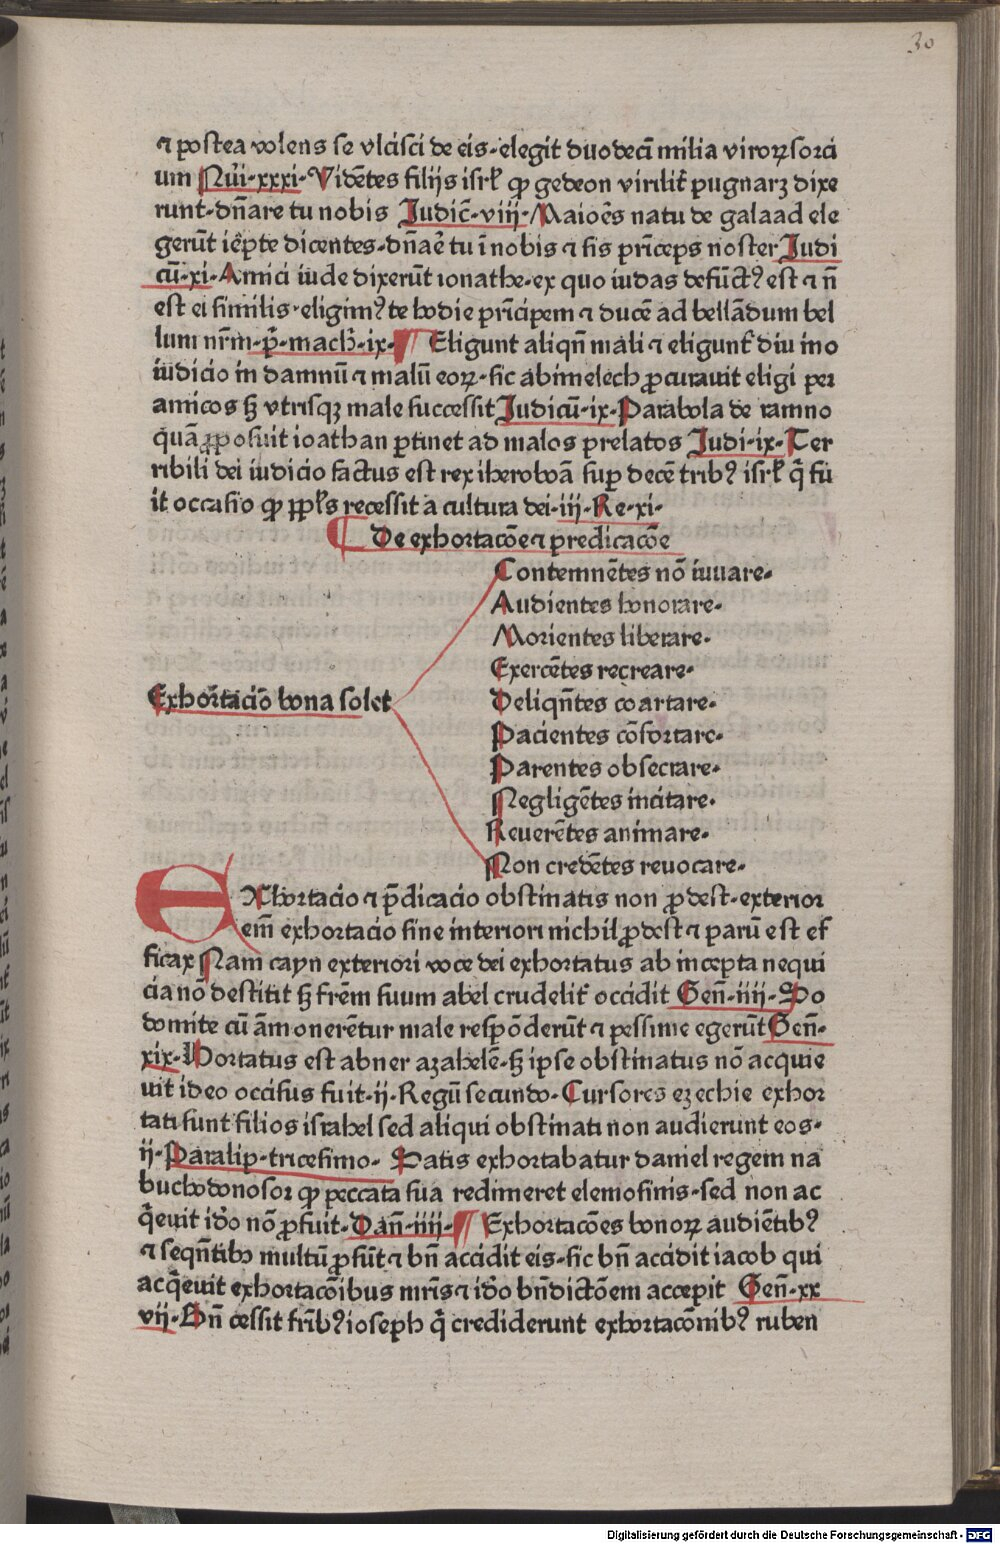 30
⁊ postea volens se vlcisci de eis·elegit duodecī milia viroꝝ forci
um Nūi·xxxi·Vidētes filij isrl̄ ꝙ gedeon virilit̄ pugnarꝫ dixe
runt·dn̄are tu nobis Judic̄·viij·Maiores natu de galaad ele
gerūt iēpte dicentes·dn̄aē tu ī nobis ⁊ sis prīceps noster Judi
cū·xi·Amici iude dixerūt ionathe·ex quo iudas defūctꝰ est ⁊ n̄
est ei similis·eligimꝰ te hodie prīcipem ⁊ ducē ad bellādum bel
lum nr̄m·p̄·mach̄·ix· Eligunt aliqn̄ mali ⁊ eligunt̄ diuino
iudicio in damnū ⁊ malū eoꝝ·sic abimelech ꝓcurauit eligi per
amicos sꝫ vtrisqꝫ male successit Judicū·ix·Parabola de ramno
quā ꝓposuit ioathan ꝑtinet ad malos prelatos Judi·ix·Ter
ribili dei iudicio factus est rex iheroboā suꝑ decē tribꝰ isrl̄ q̄ fu
it occasio ꝙ ppl̄s recessit a cultura dei·iij·Re·xi·
De exhortacōe ⁊ predicacōe
Contemnētes nō iuuare·
Audientes honorare·
Morientes liberare·
Exercētes recreare·
Exhortacio bona solet
Deliqn̄tes coartare·
Pacientes cōfortare·
Parentes obsecrare·
Negligētes incitare·
Reuerētes animare·
Non credētes reuocare·
EXhortacio ⁊ p̄dicacio obstinatis non ꝓdest·exterior
em̄ exhortacio sine interiori nichil ꝓdest ⁊ parū est ef
ficax Nam cayn exteriori voce dei exhortatus ab incepta nequi
cia nō destitit sꝫ frēm suum abel crudelit̄ occidit Gen̄·iiij·So
domite cū āmonerētur male respōderūt ⁊ pessime egerūt Gen̄·
xix·Hortatus est abner azahelē·sꝫ ipse obstinatus nō acquie
uit ideo occisus fuit·ij·Regū secundo·Cursores ezechie exhor
tati sunt filios israhel sed aliqui obstinati non audierunt eos·
ij·Paralip·tricesimo· Satis exhortabatur daniel regem na
buchodonosor ꝙ peccata sua redimeret elemosinis·sed non ac
q̄euit idō nō ꝓfuit·Dan̄·iiij· Exhortacōes bonoꝝ audiētibꝰ
⁊ seqn̄tibꝰ multū ꝓsūt ⁊ bn̄ accidit eis·sic bn̄ accidit iacob qui
acq̄euit exhortacōibus mr̄is ⁊ idō bn̄dictōem accepit Gen̄·xx
vij·Bn̄ cessit frībꝰ ioseph q̄ crediderunt exhortacōnibꝰ ruben
Digitalisierung gefördert durch die Deutsche Forschungsgemeinschaft - DFG